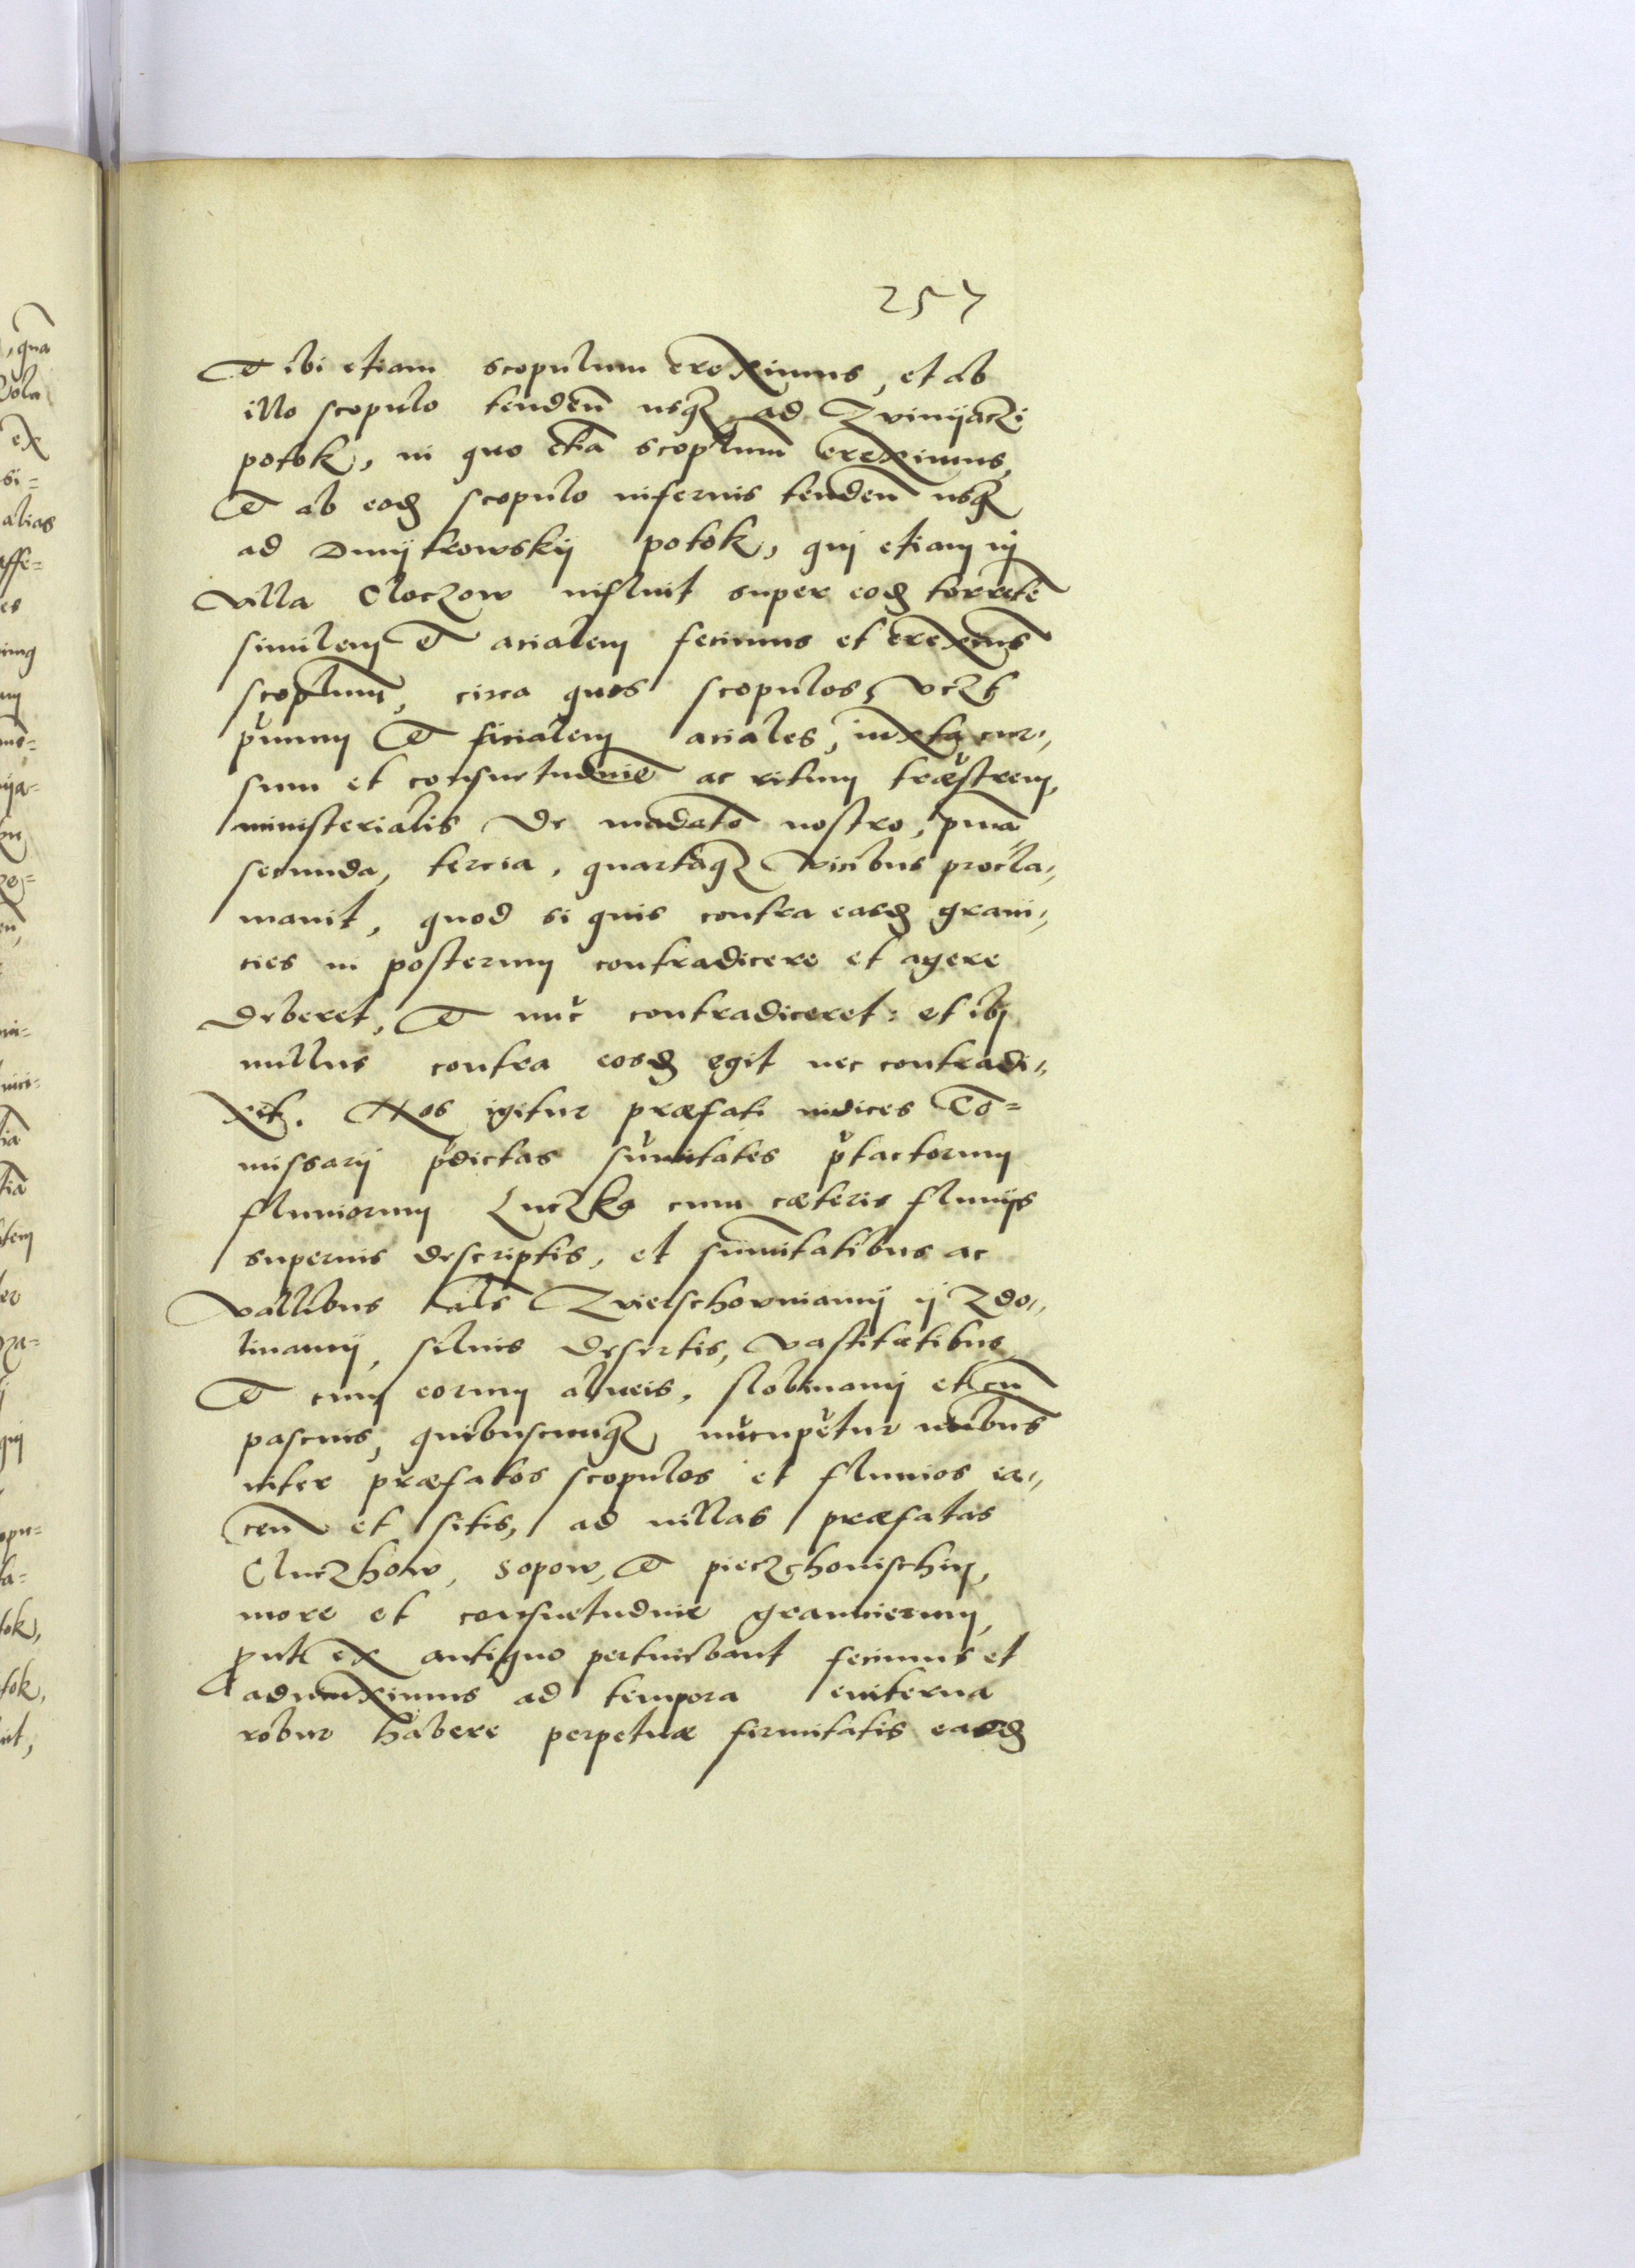 257
Et ibi etiam scopulum ereximus, et ab
illo scopulo tenden̄ usq₃ ad Zvinyaczi
potok, in quo etiā scoplum ereximus,
Et ab eod scopulo infernis tenden̄ usq₃
ad Dmijtrowskij potok, qui etiam in
villa Cloczow influit super eod torretē
similem Et acialem fecimus et ereximus
scoplum, circa quos scopulos, vcz
primum Et finalem aciales, iuxta cur„
sum et consuetudinē ac ritum træstrem,
ministerialis de mādato nostro, prima
secunda, tercia, quartaq₃ vicibus procla„
mavit, quod si quis contra easd grani„
cies in posterum contradicere et agere
deberet, Et nūc contradiceret: et ibi
nullus contra eosd egit nec contradi„
xit. Nos igitur præfati iudices Cō=
missarij pdictas sūmitates ptactorum
fluviorum Luczka cum cæteris fluvijs
supernis descriptis, et summitatibus ac
vallibus tals Zvielschovinamij ij Zdo„
linamij, silvis desertis, vastitatibus
Et cum eorum alveis, slobinamij et cū
pascuis, quibuscunq₃ nūcupētur nōibus
inter præfatos scopulos et fluvios ia„
cen̄ et sitis, ad villas præfatas
Cluczhow, Sopow, Et pieczchonischin,
more et consuetudine granicierum,
put ex antiquo pertinebant fecimus et
adiunximus ad tempora eviterna
robur habere perpetuæ firmitatis easd